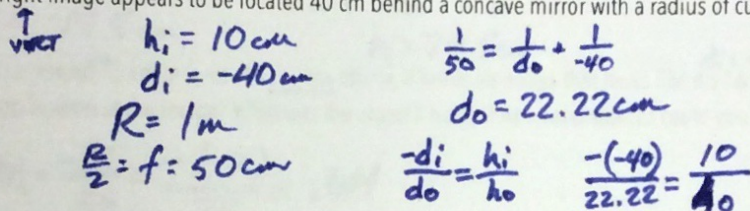 ght image appears to be located 40 cm behind a concave mirror with a radius of cu
↑
VIRT
hi = 10 cm
di = -40 cm
R = 1m
R/2 = f = 50 cm
1/50 = 1/do + 1/-40
do = 22.22 cm
-di/do = hi/ho
-(-40)/22.22 = 10/ho